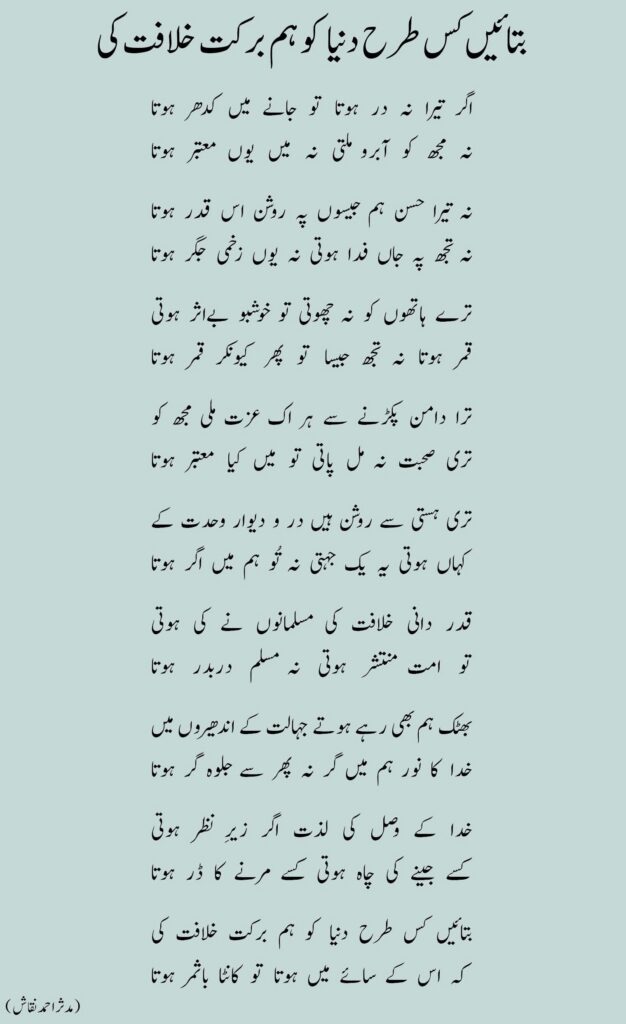 بتائیں کس طرح دنیا کو ہم برکت خلافت کی
اگر تیرا نہ در ہوتا تو جانے میں کدھر ہوتا
نہ مجھ کو آبرو ملتی نہ میں یوں معتبر ہوتا
نہ تیرا حسن ہم جیسوں پہ روشن اس قدر ہوتا
نہ تجھ پہ جاں فدا ہوتی نہ یوں زخمی جگر ہوتا
ترے ہاتھوں کو نہ چھوتی تو خوشبو بےاثر ہوتی
قمر ہوتا نہ تجھ جیسا تو پھر کیونکر قمر ہوتا
ترا دامن پکڑنے سے ہر اک عزت ملی مجھ کو
تری صحبت نہ مل پاتی تو میں کیا معتبر ہوتا
تری ہستی سے روشن ہیں در و دیوار وحدت کے
کہاں ہوتی یہ یک جہتی نہ تُو ہم میں اگر ہوتا
قدر دانی خلافت کی مسلمانوں نے کی ہوتی
تو امت منتشر ہوتی نہ مسلم دربدر ہوتا
بھٹک ہم بھی رہے ہوتے جہالت کے اندھیروں میں
خدا کا نور ہم میں گر نہ پھر سے جلوہ گر ہوتا
خدا کے وصل کی لذت اگر زیرِ نظر ہوتی
کسے جینے کی چاہ ہوتی کسے مرنے کا ڈر ہوتا
بتائیں کس طرح دنیا کو ہم برکت خلافت کی
کہ اس کے سائے میں ہوتا تو کانٹا باثمر ہوتا
(مدثر احمد نقاش)